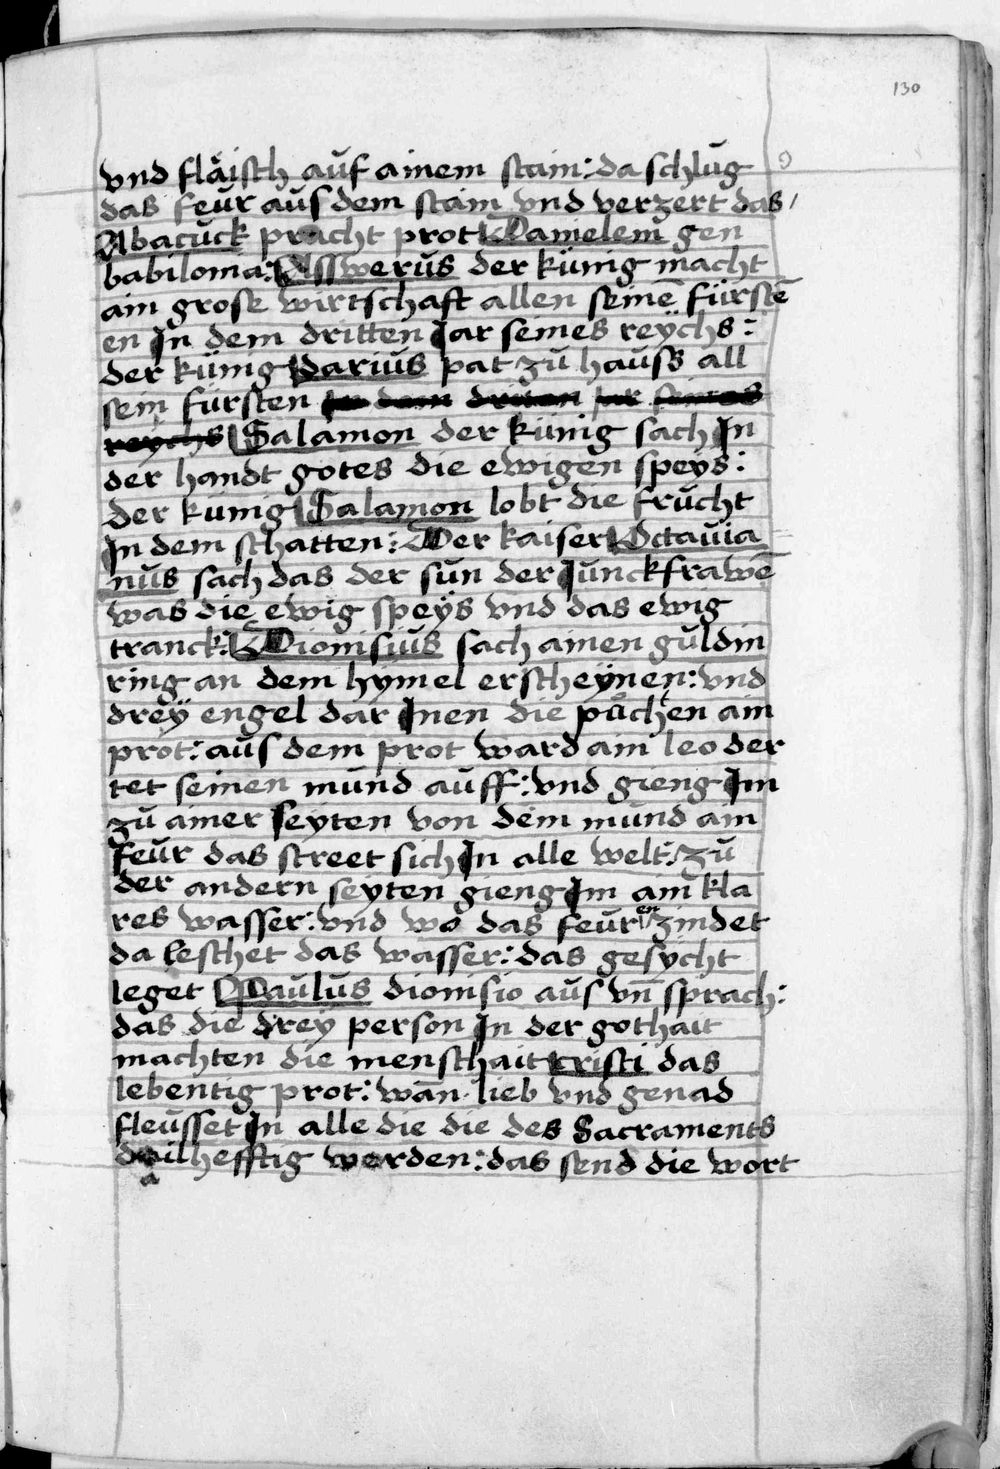 130
vnd fläisch auf ainem stain: da schlug
das feur aus dem stain vnd verzert das /
Abacuck pracht prot Danielem gen
babilonia: Asswerus der künig macht
ain grose wirtschaft allen seinē fürstē
en In dem dritten Jar seines reÿchs:
der künig darius pat zu hauss all
sein fürsten in dem driten jar seines
reychs Salamon der künig sach In
der handt gotes die ewigen speÿs:
der künig Salamon lobt die frucht
In dem schatten: Der kaiser Octauia
nus sach das der sun der Junckfrawē
was die ewig speÿs vnd das ewig
tranck: Dionisius sach ainen guldin
ring an dem hymel erscheÿnen: vnd
dreÿ engel dar Inen die půchten ain
prot: aus dem prot ward ain leo der
tet seinen mund auff: vnd gieng Im
zu ainer seyten von dem mund ain
feur das street sich In alle welt: zu
der andern seyten gieng Im ain kla
res wasser: vnd wo das feur enzindet
da leschet das wasser: das gesycht
leget Paulus dionisio aus vn̄ sprach:
das die drey person In der gothait
machten die menschait cristi das
lebentig prot: wan̄ lieb vnd genad
fleusset In alle die die des Sacraments
dailhefftig werden: das send die wort
a